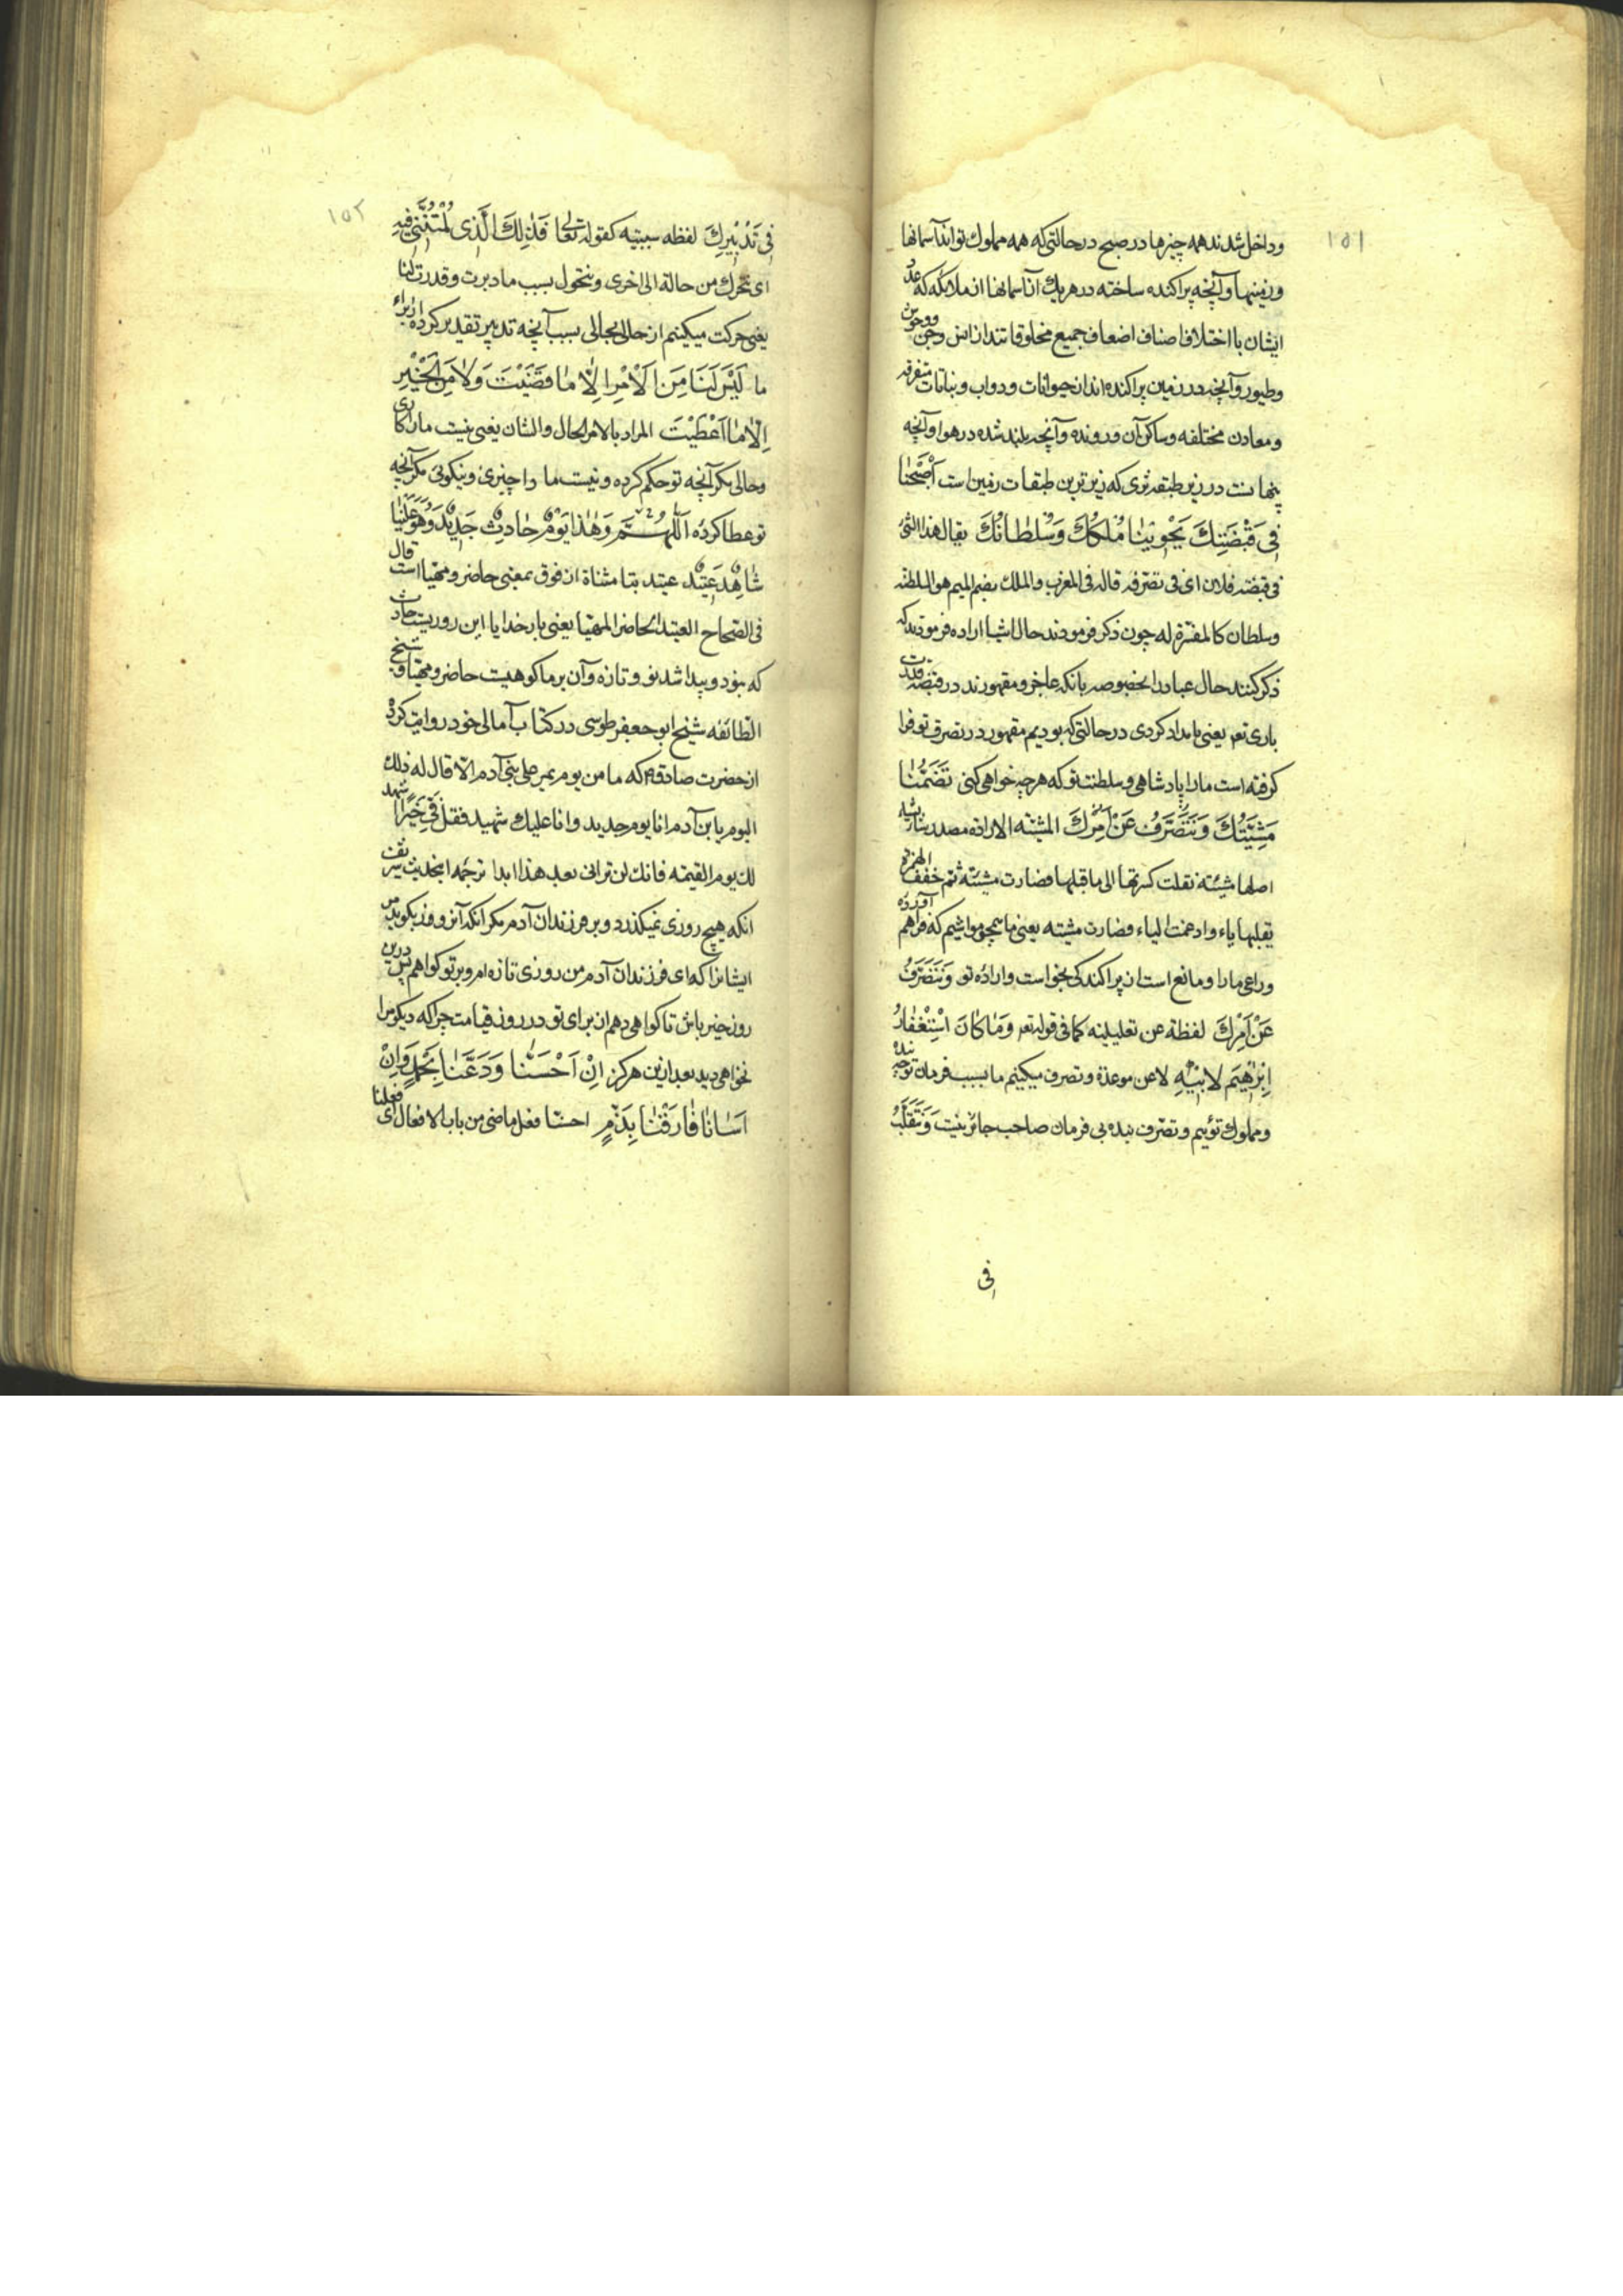 ١٥١
و داخل شدند همه چیزها در صبح در حالتی که همه مملوک تواند آسمانها
و زمینها و آنچه پراکنده ساخته در هر یک از آسمانها از ملائکه که عدد
ایشان با اختلاف اصناف اضعاف جمیع مخلوقاتند از انس و جن و وحوش
و طیور و آنچه در زمین پراکنده اند از حیوانات و دواب و نباتات متفرقه
و معادن مختلفه و ساکن آن و رونده و آنچه بلند شده در هوا و آنچه
پنهانست در زیر طبقه ثری که زیرترین طبقات زمین است اَصْبَحْنا
فی قَبْضَتِكَ يَحْوينا مُلْكُكَ وَسُلْطانُكَ يقال هذا الشئ
فی قبضة فلان ای فی تصرفه قاله فی المغرب والملك بضم الميم هو السلطنة
و سلطان کالمفسرة له چون ذکر فرمودند حال اشیا اراده فرمودند که
ذکر کنند حال عباد را بخصوصه بانکه عاجز و مقهورند در قبضه قدرت
باری تعم یعنی بامداد کردی در حالتی که بودیم مقهور در تصرف تو فرا
کرفته است ما را پادشاهی و سلطنت تو که هر چه خواهی کنی تَضُمُّنا
مَشِيَّتُكَ وَنَتَصَرَّفُ عَنْ اَمْرِكَ المشیّة الارادة مصدر شاء یشاء
اصلها مشیئة نقلت کسرتها الی ما قبلها فصارت مشیئة ثم خفف الهمزة
بقلبها یاء و ادغمت الیاء فصارت مشیّة یعنی ما سمحق مواشیم که فراهم آورده
و راعی ما را و مانع است از پراکندکی بخواست و اراده تو وَنَتَصَرَّفُ
عَنْ اَمْرِكَ لفظة عن تعلیلیه کما فی قوله تعم وَماكانَ اسْتِغْفارُ
اِبْرٰهيمَ لِاَبيهِ الا عن موعدة و تصرف میکنیم ما بسبب فرمان تو چه بنده
و مملوک توییم و تصرف بنده بی فرمان صاحب جائز نیست وَنَتَقَلَّبُ
فی
١٥٢
فی تَدْبيرِكَ لفظه سببیه کقوله تعالی فَذٰلِكَ الَّذی لُمْتُنَّنی فيهِ
ای نتحرك من حالة الی اخری و نتحول بسبب ما دبرت و قدرت لنا
یعنی حرکت میکنیم از حالی بحالی بسبب آنچه تدبیر تقدیر کرده از برای
ما لَيْسَ لَنا مِنَ الْاَمْرِ اِلّا ما قَضَيْتَ وَلا مِنَ الْخَيْرِ
اِلّا ما اَعْطَيْتَ المراد بالامر الحال والشان یعنی نیست ما را کاری
و حالی مکر آنچه تو حکم کرده و نیست ما را چیزی و نیکوئی مکر آنچه
تو عطا کرده اَللّهُمَّ وَهٰذا يَوْمٌ حادِثٌ جَديدٌ وَهُوَ عَلَيْنا
شاهِدٌ عَتيدٌ عتید بتا مثناة از فوق بمعنی حاضر و مهیا است قال
فی الصحاح العتید الحاضر المهیا یعنی بار خدایا این روزیست حادث
که نبود و پیدا شد نو و تازه و آن بر ما کواهیست حاضر و مهیا و شیخ
الطائفه شیخ ابو جعفر طوسی در کتاب آمالی خود روایت کرده
از حضرت صادق ع که ما من یوم یمر علی بنی آدم الا قال له ذلك
الیوم یا بن آدم انا یوم جدید و انا علیك شهید فقل فیّ خیراً اشهد
لك یوم القیمة فانك لن ترانی بعد هذا ابدا ترجمه این حدیث شریف
انکه هیچ روزی نمیکذرد و بر فرزندان آدم مکر انکه آنروز میکوید مر
ایشانرا که ای فرزندان آدم من روزی تازه ام و بر تو کواهم پس درین
روز خیر باش تا کواهی دهم از برای تو در روز قیامت چرا که دیکر مرا
نخواهی دید بعد ازین هرکز اِنْ اَحْسَنّا وَدَّعَنا بِحَمْدٍ وَاِنْ
اَسَاْنا فارَقَنا بِذَمٍّ احسنا فعل ماضی من باب الافعال ای فعلنا